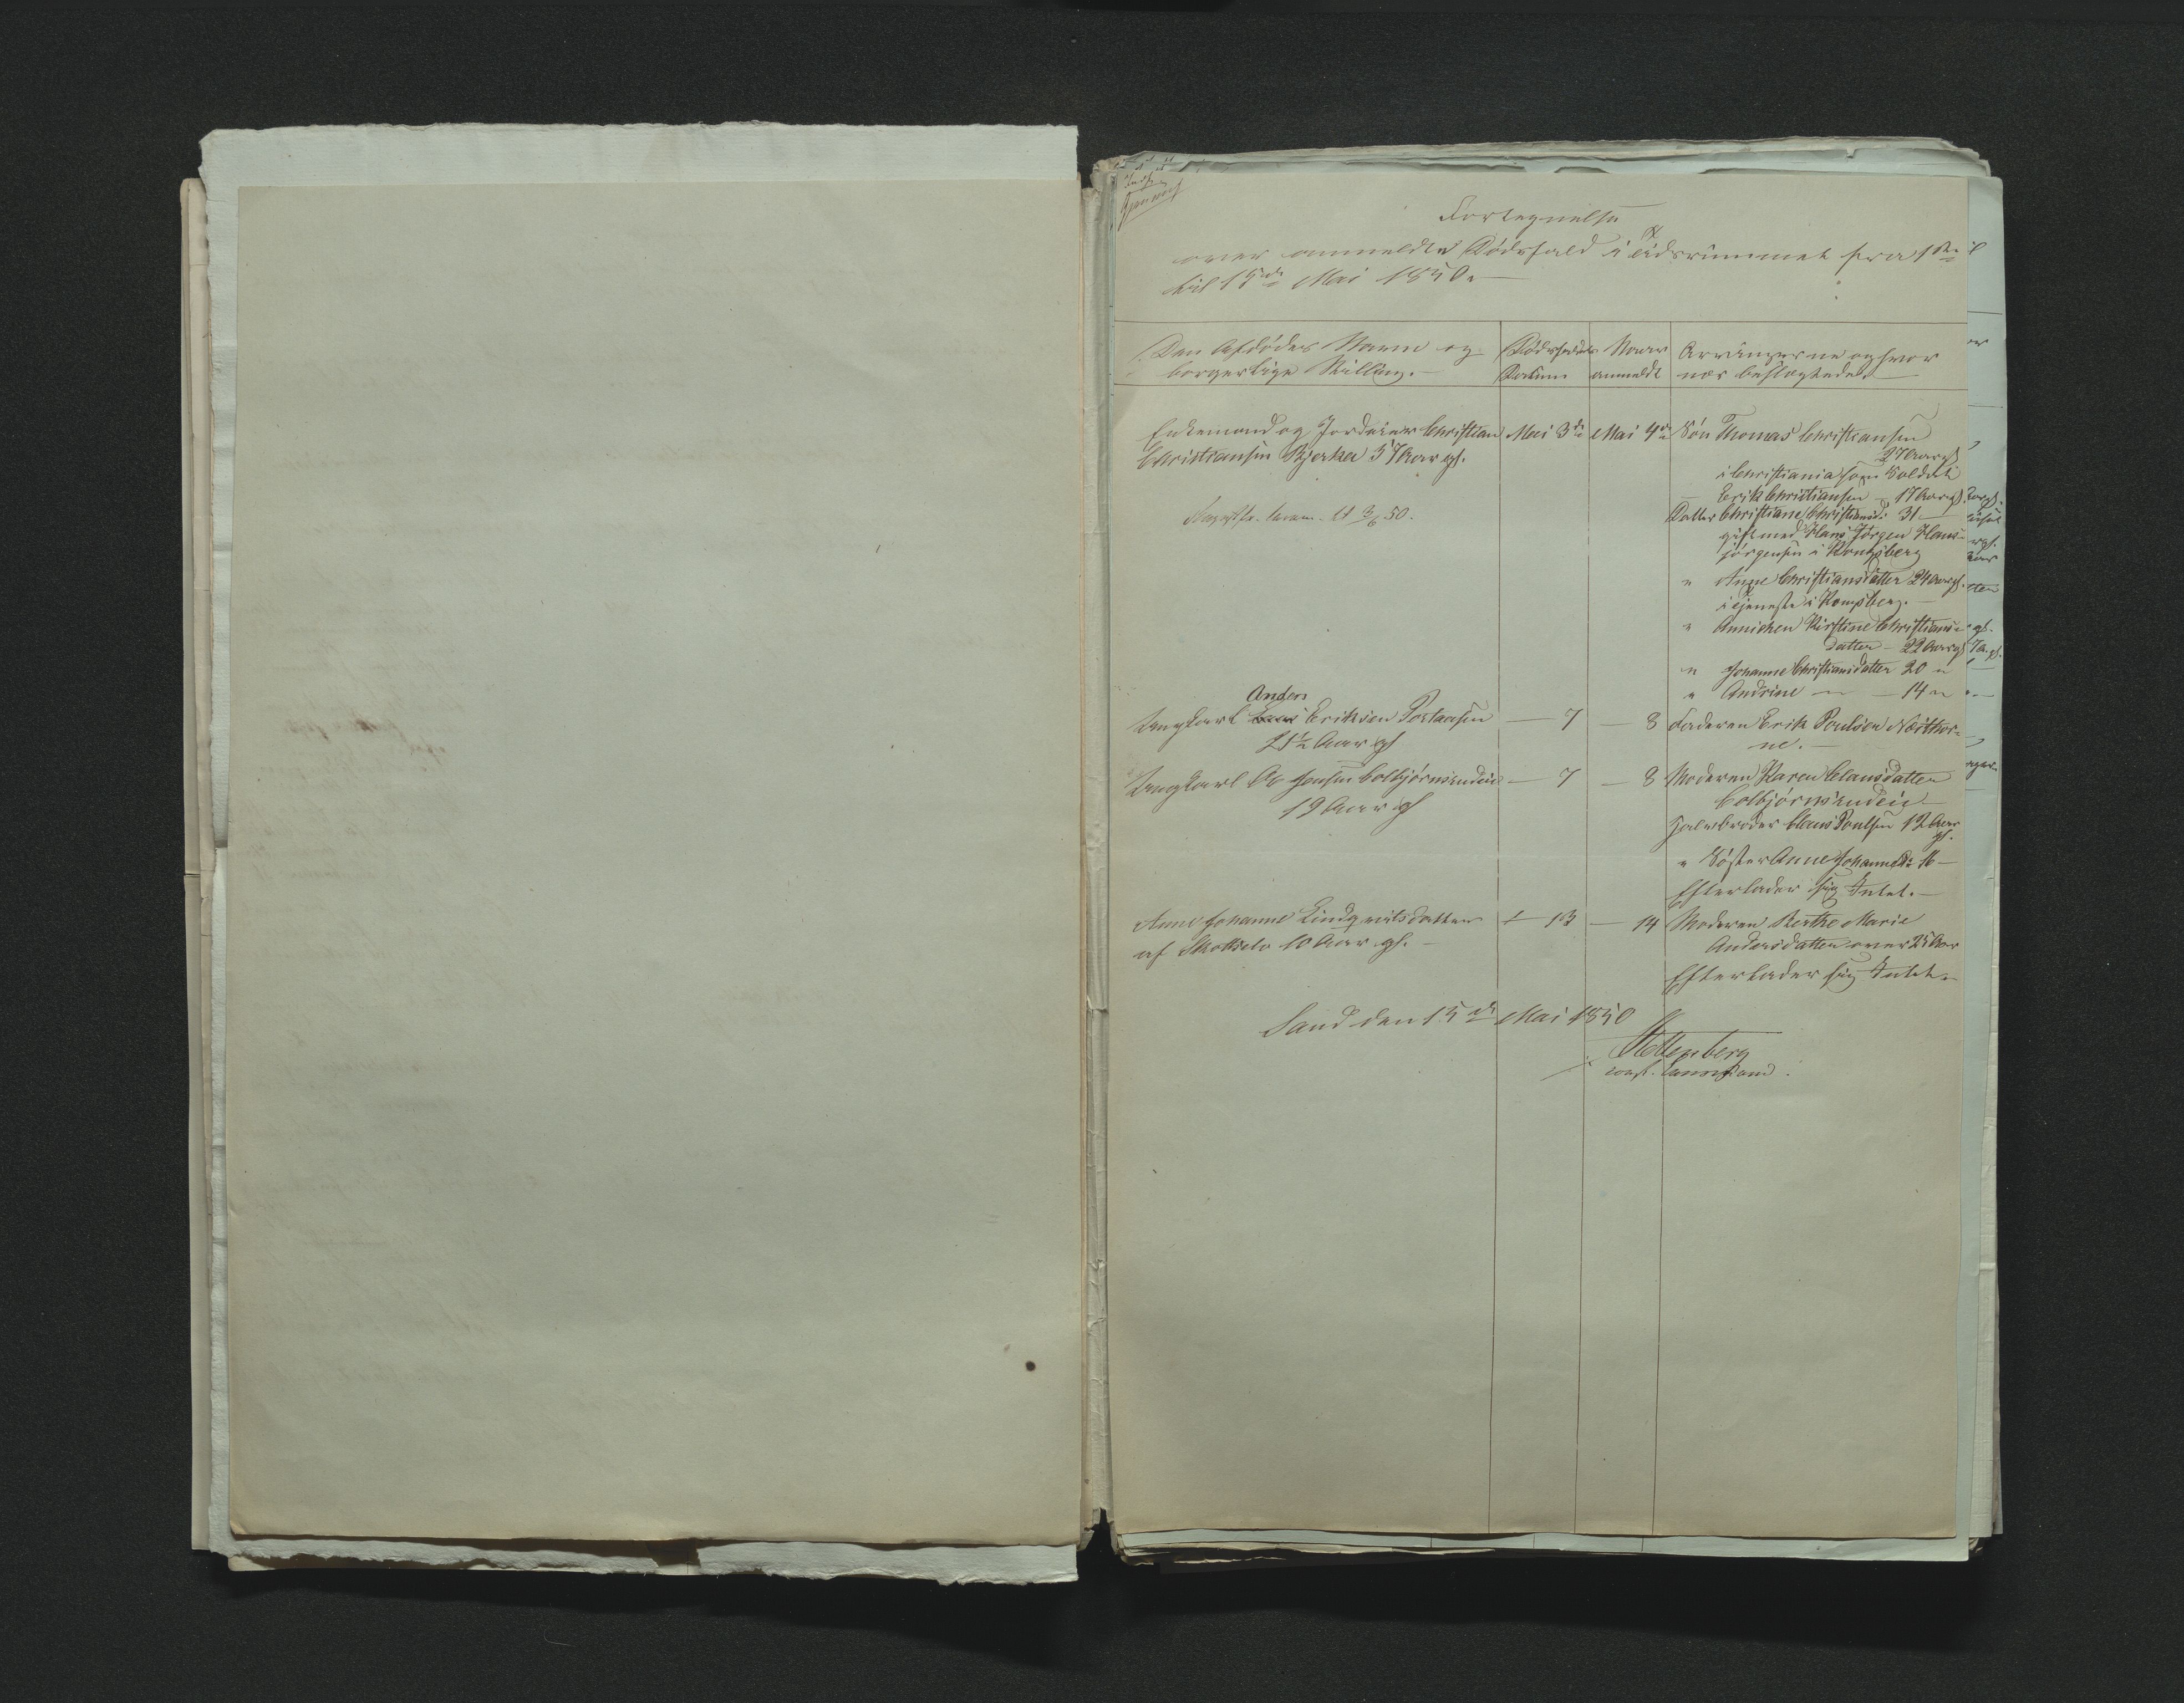 Fortegnelse
over anmeldte Dødsfald i Tidsrummet fra 1ste
til 15de Mai 1850.
Den Afdødes Navn og
borgerlige Stilling.
Dødsfaldets
Datum
Naar
anmeldt
Arvingerne og hvor
nær beslægtede.
Enkemand og Jordeier Christian
Christiansen Bjerke 57 Aar gl.
Mai 3de
Mai 4de
Søn Thomas Christiansen
27 Aar gl.
i Christiania som Soldat
Erik Christiansen - 17 Aar gl.
Datter Christiane Christiansd: 31 —
gift med Hans Jörgen Hans-
jörgensen i Kongsberg
" Anne Christiansdatter 24 Aar gl.
i Tjeneste i Kongsberg.
" Annichen Kirstine Christians-
datter - 22 Aar gl.
" Johanne Christiansdatter 20 "
" Andrine — — 14 "
3/6 50.
Anders
Ungkarl Eriksen
21½ Aar gl
— 7
— 8
Faderen Erik Poulsen
Ungkarl Ole Jensen Colbjørnsrudeie
19 Aar gl
— 7
— 8
Moderen Karen Clausdatter
Colbjörnsrudeie
Halvbroder Claus Poulsen 12 Aar
gl.
" Søster Anne Johannesd: 16 —
Efterlader sig Intet.
Anne Johanne Lindqvistsdatter
af Skotselv 10 Aar gl. —
— 13
— 14
Moderen Berthe Marie
Andersdatter over 25 Aar
Efterlader sig Intet.
Sand den 15de Mai 1850
Stoltenberg
const. Lensmand.